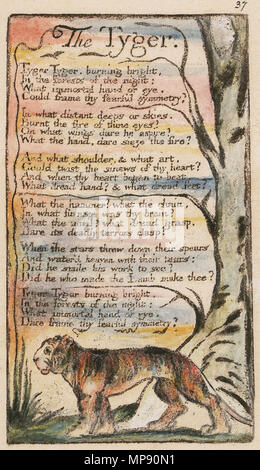 37
The Tyger.
Tyger Tyger, burning bright,
In the forests of the night:
What immortal hand or eye,
Could frame thy fearful symmetry?
In what distant deeps or skies.
Burnt the fire of thine eyes?
On what wings dare he aspire?
What the hand, dare sieze the fire?
And what shoulder, & what art,
Could twist the sinews of thy heart?
And when thy heart began to beat,
What dread hand? & what dread feet?
What the hammer? what the chain,
In what furnace was thy brain?
What the anvil? what dread grasp,
Dare its deadly terrors clasp?
When the stars threw down their spears
And water'd heaven with their tears:
Did he smile his work to see?
Did he who made the Lamb make thee?
Tyger Tyger burning bright,
In the forests of the night:
What immortal hand or eye,
Dare frame thy fearful symmetry?
MP90N1